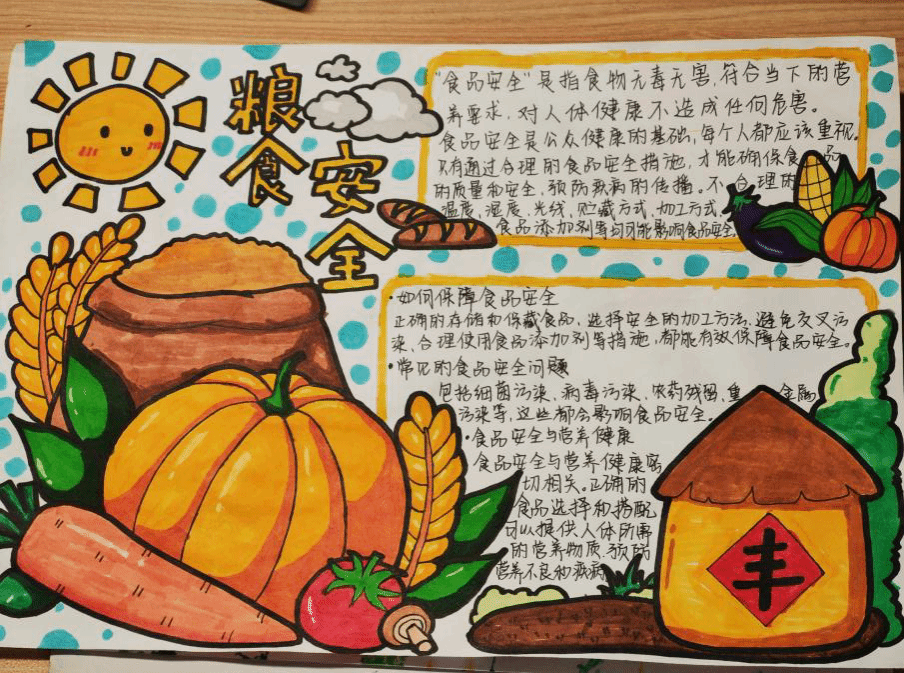 粮食
安全
"食品安全"是指食物无毒无害,符合当下的营
养要求,对人体健康不造成任何危害。
食品安全是公众健康的基础,每个人都应该重视。
只有通过合理的食品安全措施,才能确保食品
的质量和安全,预防疾病的传播。不合理的
温度,湿度,光线,贮藏方式,加工方式,
食品添加剂等均可能影响食品安全。
·如何保障食品安全
正确的存储和保藏食品,选择安全的加工方法,避免交叉污
染,合理使用食品添加剂等措施,都能有效保障食品安全。
·常见的食品安全问题
包括细菌污染,病毒污染,农药残留,重金属
污染等,这些都会影响食品安全。
·食品安全与营养健康
食品安全与营养健康密
切相关。正确的
食品选择和搭配
可以提供人体所需
的营养物质,预防
营养不良和疾病
丰